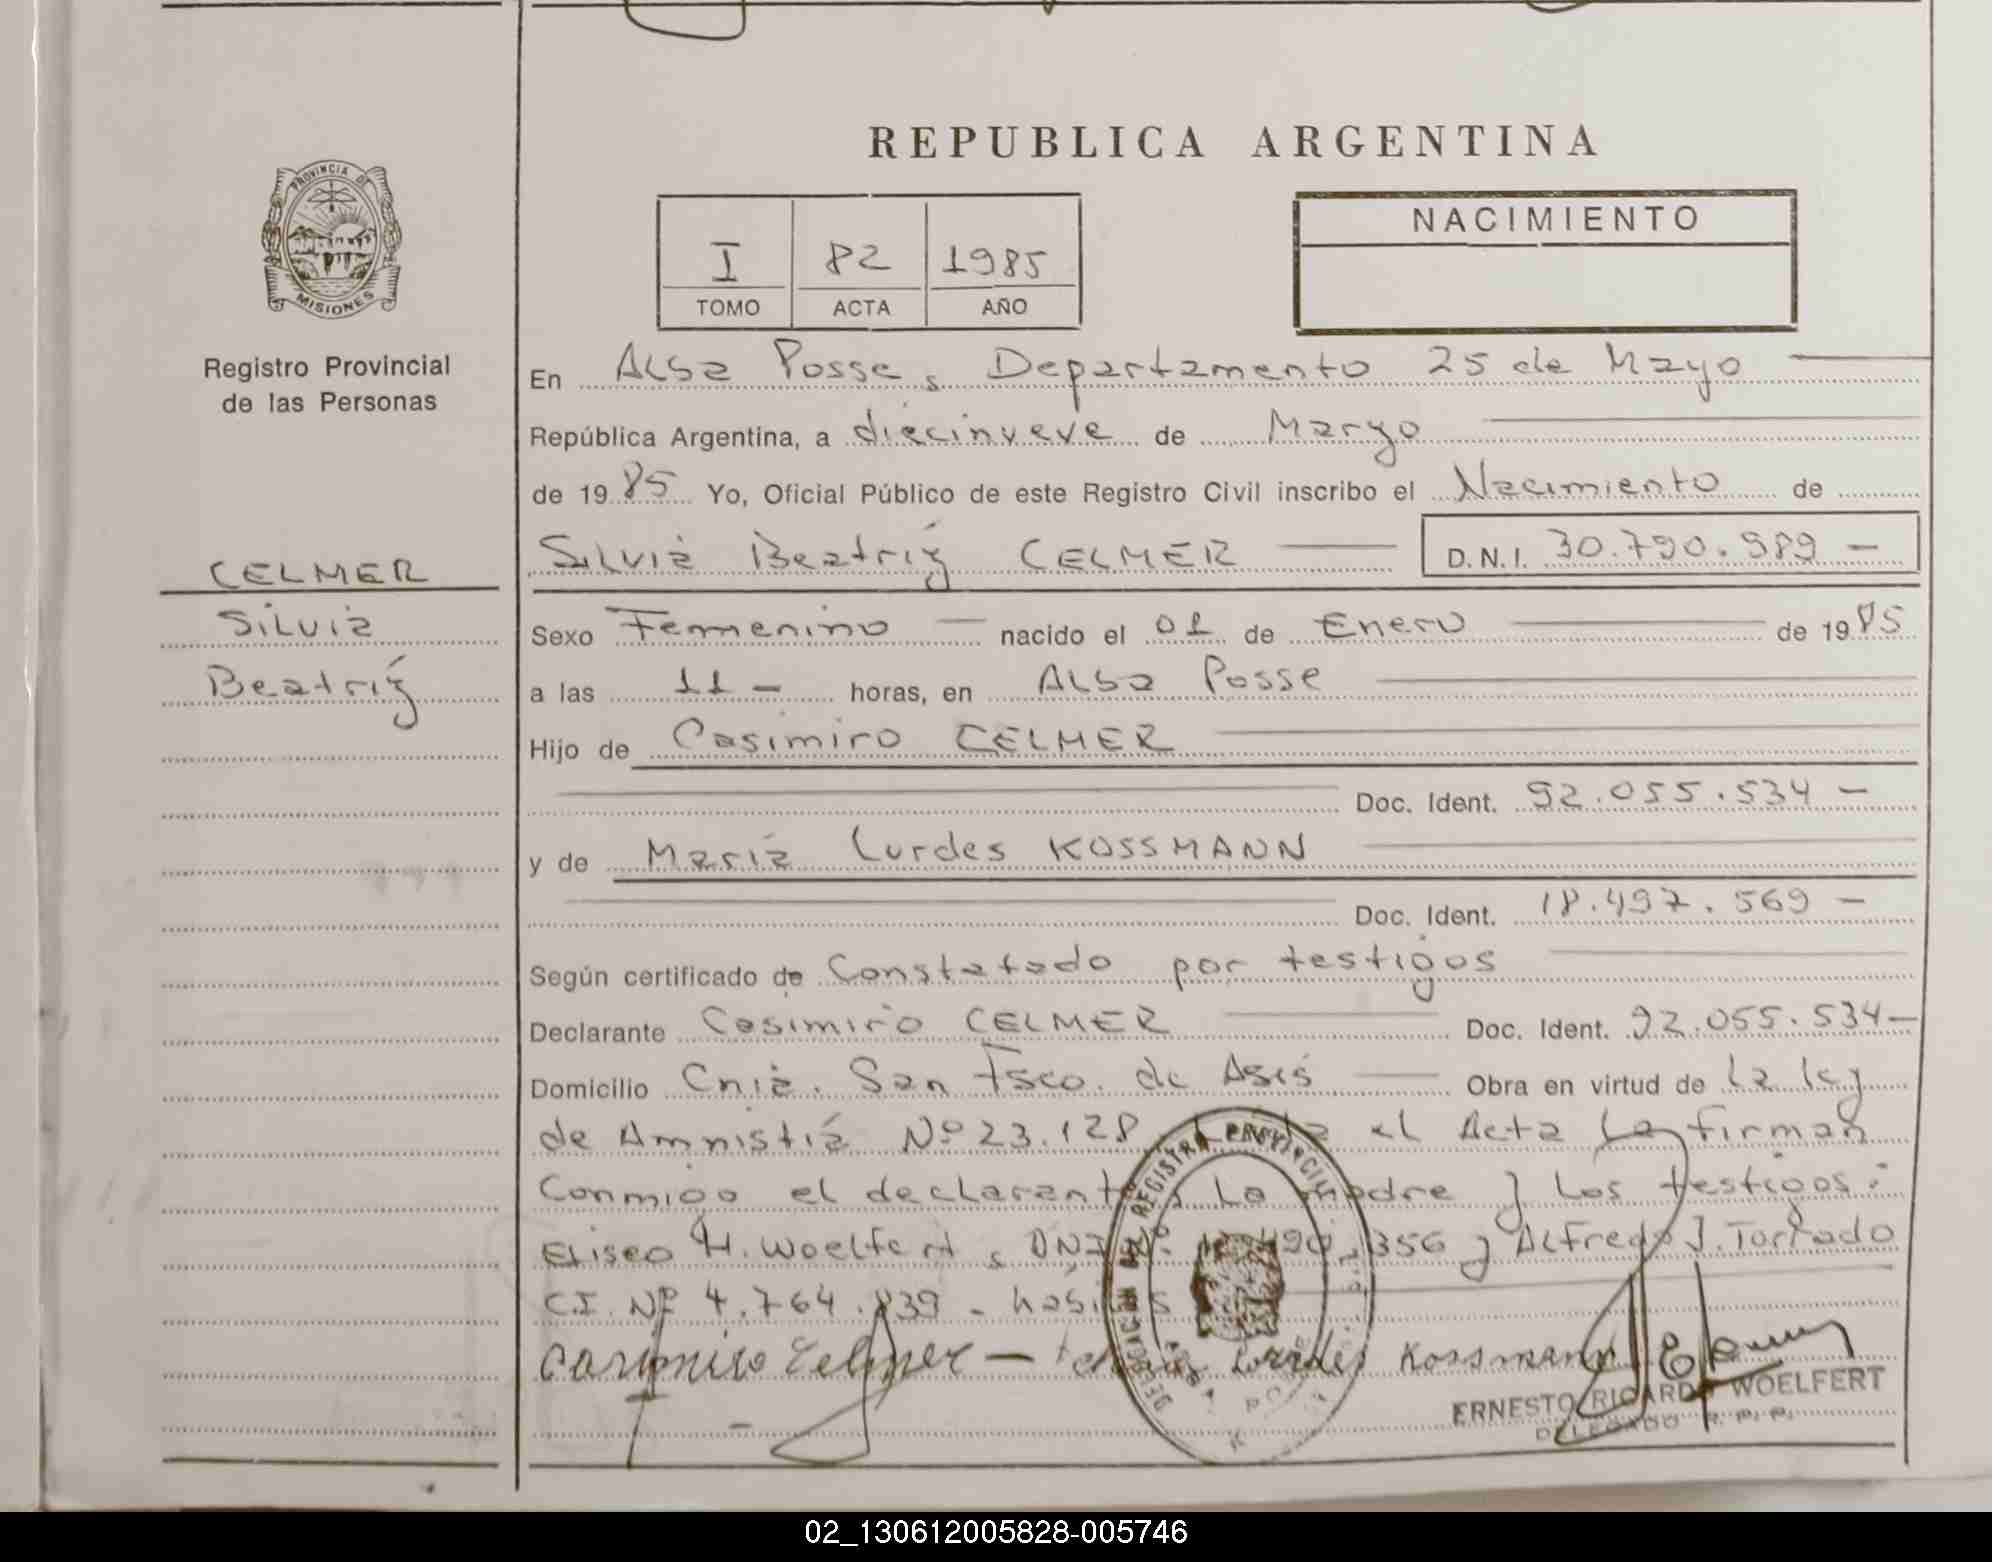 REPUBLICA ARGENTINA
PROVINCIA DE
MISIONES
Registro Provincial
de las Personas
I 82 1985
TOMO ACTA AÑO
NACIMIENTO
En Alba Posse, Departamento 25 de Mayo
República Argentina, a diecinueve de Marzo
de 1985 Yo, Oficial Público de este Registro Civil inscribo el Nacimiento de
CELMER
Silvia
Beatríz
Silvia Beatríz CELMER D.N.I. 30.790.989 —
Sexo Femenino — nacido el 01 de Enero de 1985
a las 11 — horas, en Alba Posse
Hijo de Casimiro CELMER
Doc. Ident. 92.055.534 —
y de María Lurdes KOSSMANN
Doc. Ident. 18.497.569 —
Según certificado de Constatado por testigos
Declarante Casimiro CELMER Doc. Ident. 92.055.534 —
Domicilio Cnia. San Fsco. de Asís — Obra en virtud de la ley
de Amnistía Nº 23.128 el Acta la firman
Conmigo el declarante, la madre y los testigos:
Eliseo H. Woelfert, DNI 356 y Alfredo J. Tortado
C.I. Nº 4.764.839 -
Casimiro Celmer — Lurdes Kossmann
ERNESTO RICARDO WOELFERT
DELEGADO R. P. P.
REGISTRO PROVINCIAL
02_130612005828-005746